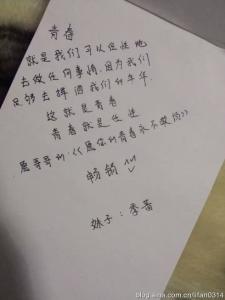 青春
就是我们可以任性地
去做任何事情,因为我们
足够去挥洒我们的年华
这就是青春
青春就是任性
愿哥哥的:《愿你的青春永不散场》
畅销
妹子:李
blog.sina.com.cn/lifan0314